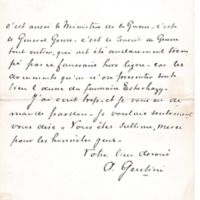 c'est aussi le Ministère de la Guerre, c'est
le Général Gonse, c'est le Conseil de Guerre
tout entier, qui ont été audacieusement trom-
pés par ce faussaire hors ligne, car les
documents qu'on nous présente tous
l'œuvre du faussaire Esterhazy.
J'ai écrit trop, et je vous en de-
mande pardon. Je voulais seulement
vous dire : Vous êtes sublime, merci
pour les honnêtes gens.
Votre bien dévoué